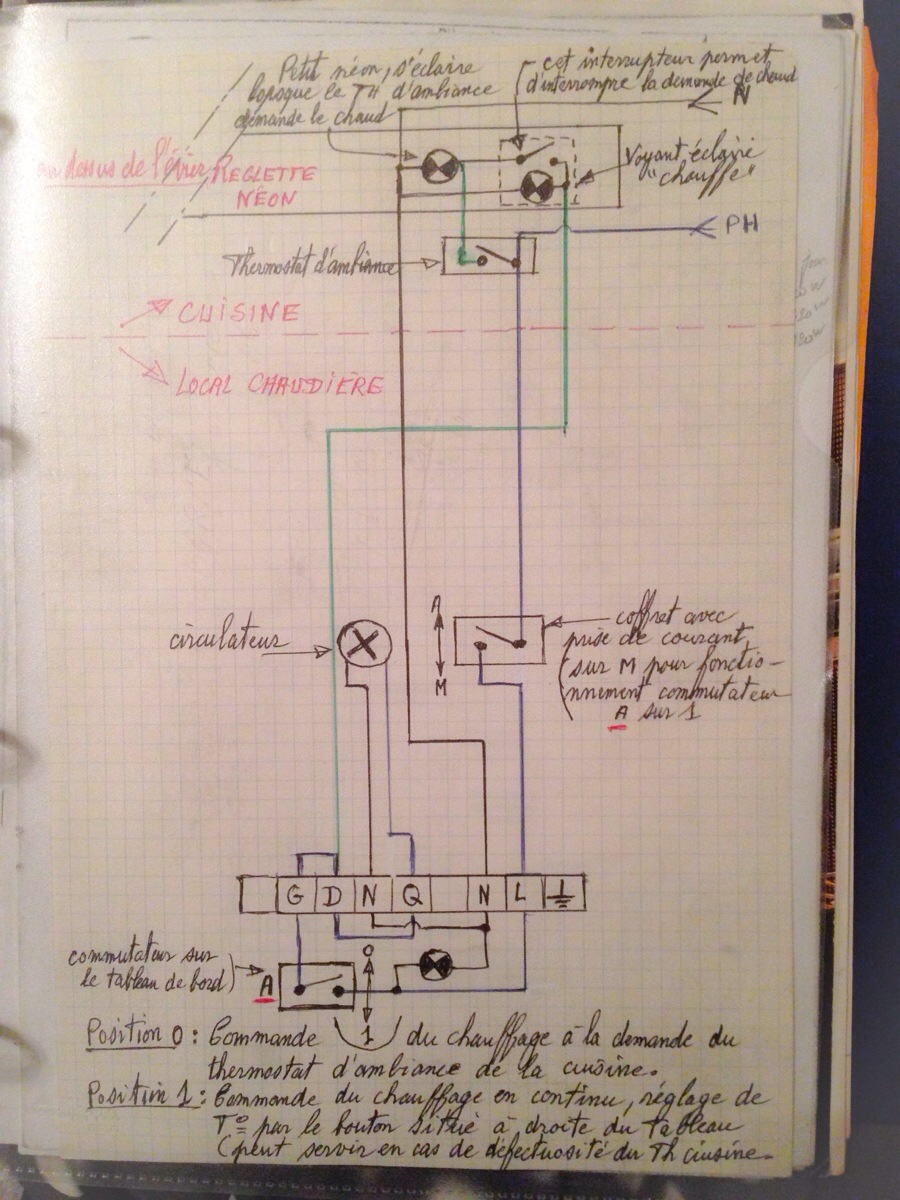 Petit néon, s'éclaire
lorsque le TH d'ambiance
demande le chaud
cet interrupteur permet
d'interrompre la demande de chaud
N
au dessus de l'évier
REGLETTE
NÉON
Voyant éclairé
"chauffe"
PH
Thermostat d'ambiance
CUISINE
LOCAL CHAUDIÈRE
circulateur
A
M
coffret avec
prise de courant,
(sur M pour fonctio-
nnement commutateur
A sur 1
G D N Q N L
commutateur sur
le tableau de bord)
A
0
1
Position 0 : Commande du chauffage à la demande du
thermostat d'ambiance de la cuisine.
Position 1 : Commande du chauffage en continu, réglage de
T° par le bouton situé à droite du tableau
(peut servir en cas de défectuosité du Th cuisine.